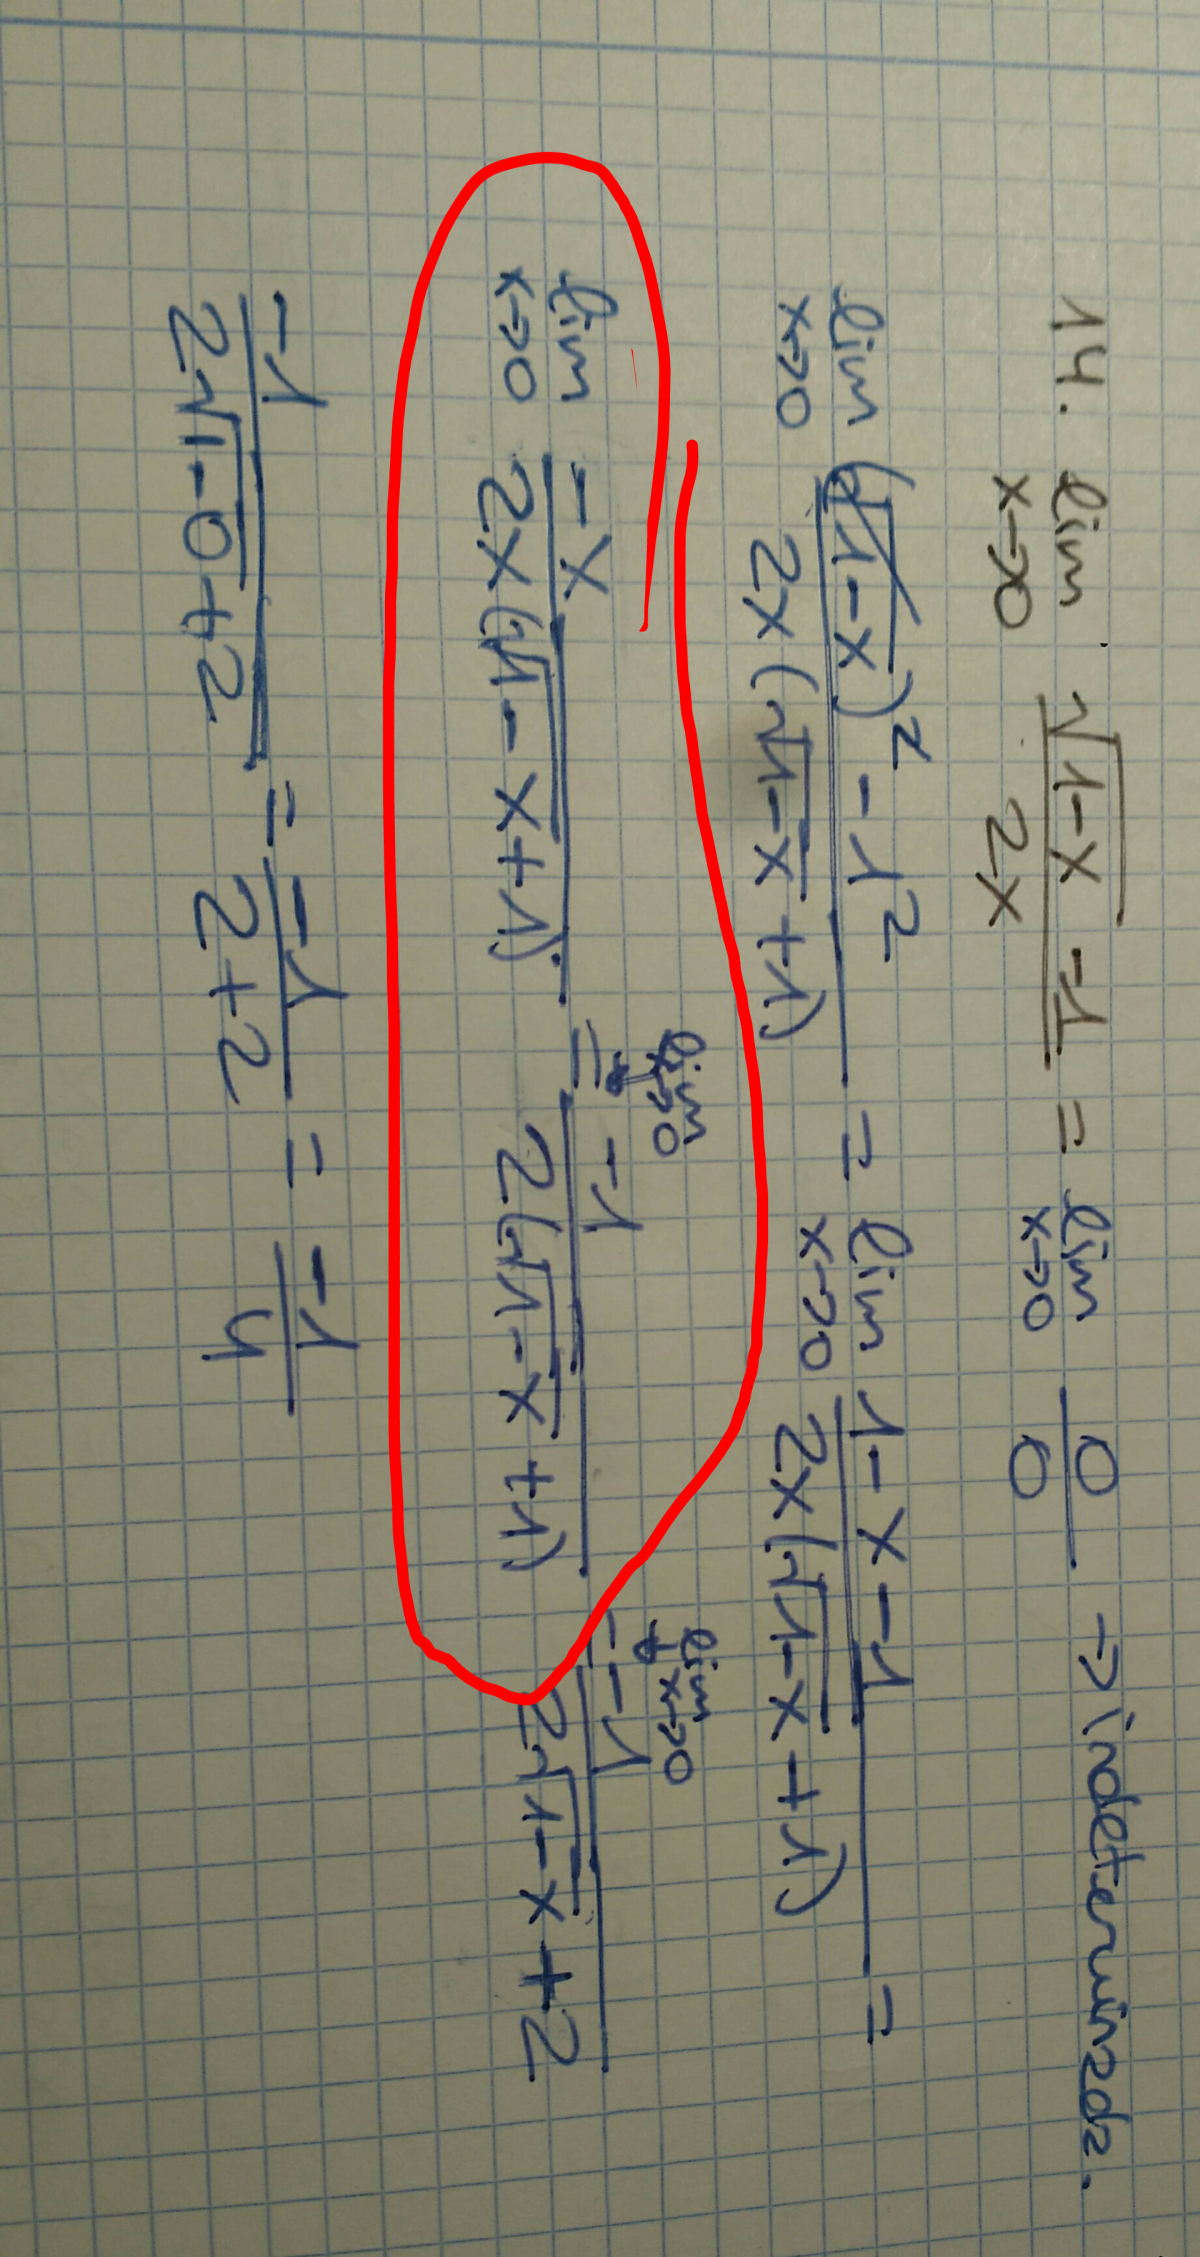 14. lim x→0 (√(1-x) -1)/(2x) = lim x→0 0/0 → indeterminada.
lim x→0 ((√(1-x))² - 1²)/(2x(√(1-x) +1)) = lim x→0 (1-x-1)/(2x(√(1-x) +1)) =
lim x→0 (-x)/(2x(√(1-x+1)) = lim x→0 (-1)/(2(√(1-x) +1)) = lim x→0 (-1)/(2√(1-x) +2)
(-1)/(2√(1-0) +2) = (-1)/(2+2) = (-1)/4